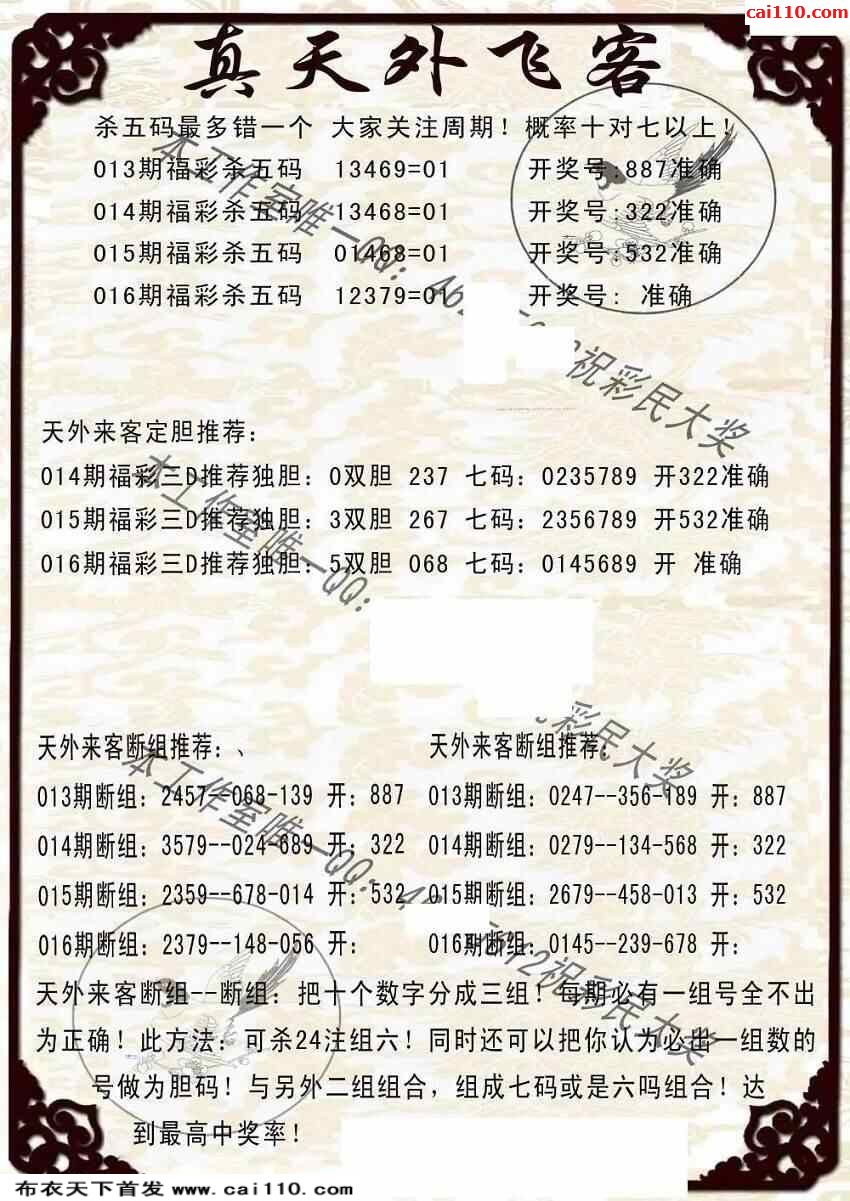 cai110.com
真天外飞客
杀五码最多错一个 大家关注周期！概率十对七以上！
013期福彩杀五码 13469=01 开奖号:887准确
014期福彩杀五码 13468=01 开奖号:322准确
015期福彩杀五码 01468=01 开奖号:532准确
016期福彩杀五码 12379=01 开奖号: 准确
本工作室唯一QQ:
祝彩民大奖
天外来客定胆推荐:
014期福彩三D推荐独胆: 0双胆 237 七码: 0235789 开322准确
015期福彩三D推荐独胆: 3双胆 267 七码: 2356789 开532准确
016期福彩三D推荐独胆: 5双胆 068 七码: 0145689 开 准确
本工作室唯一QQ:
彩民大奖
天外来客断组推荐:、 天外来客断组推荐:
013期断组: 2457--068-139 开: 887 013期断组: 0247--356-189 开: 887
014期断组: 3579--024-689 开: 322 014期断组: 0279--134-568 开: 322
015期断组: 2359--678-014 开: 532 015期断组: 2679--458-013 开: 532
016期断组: 2379--148-056 开: 016期断组: 0145--239-678 开:
本工作室唯一QQ:
祝彩民大奖
天外来客断组--断组: 把十个数字分成三组！每期必有一组号全不出
为正确！此方法: 可杀24注组六！同时还可以把你认为必出一组数的
号做为胆码！与另外二组组合, 组成七码或是六吗组合！达
到最高中奖率！
布衣天下首发 www.cai110.com